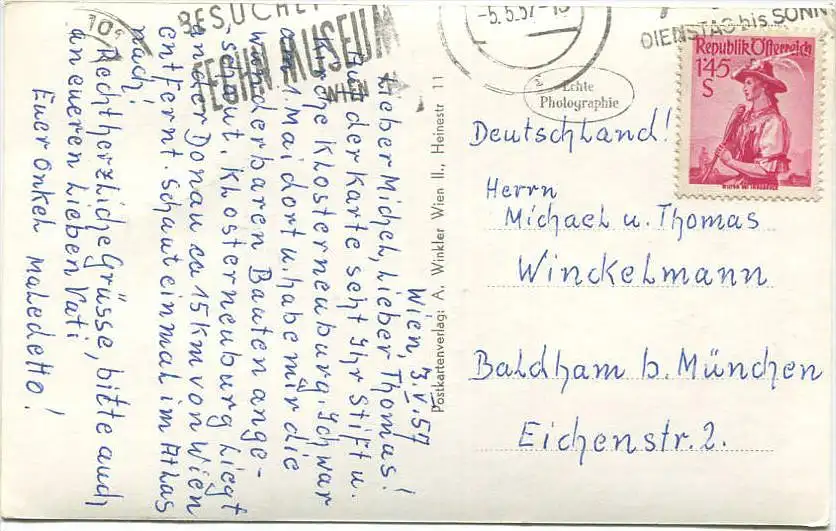 BESUCHET
TECHN. MUSEUM
WIEN
-5.5.57-
DIENSTAG bis SONN
Republik Österreich
1·45
S
Echte
Photographie
Wien, 3.V.57
Lieber Michel, Lieber Thomas!
Auf der Karte seht Ihr Stift u.
Kirche Klosterneuburg. Ich war
am 1. Mai dort u. habe mir die
wunderbaren Bauten ange-
schaut. Klosterneuburg liegt
an der Donau ca 15 km von Wien
entfernt. Schaut einmal im Atlas
nach!
Recht herzliche Grüsse, bitte auch
an eueren lieben Vati
Euer Onkel Maledetto!
Postkartenverlag: A. Winkler Wien II., Heinestr 11
Deutschland!
Herrn
Michael u. Thomas
Winckelmann
Baldham b. München
Eichenstr. 2.